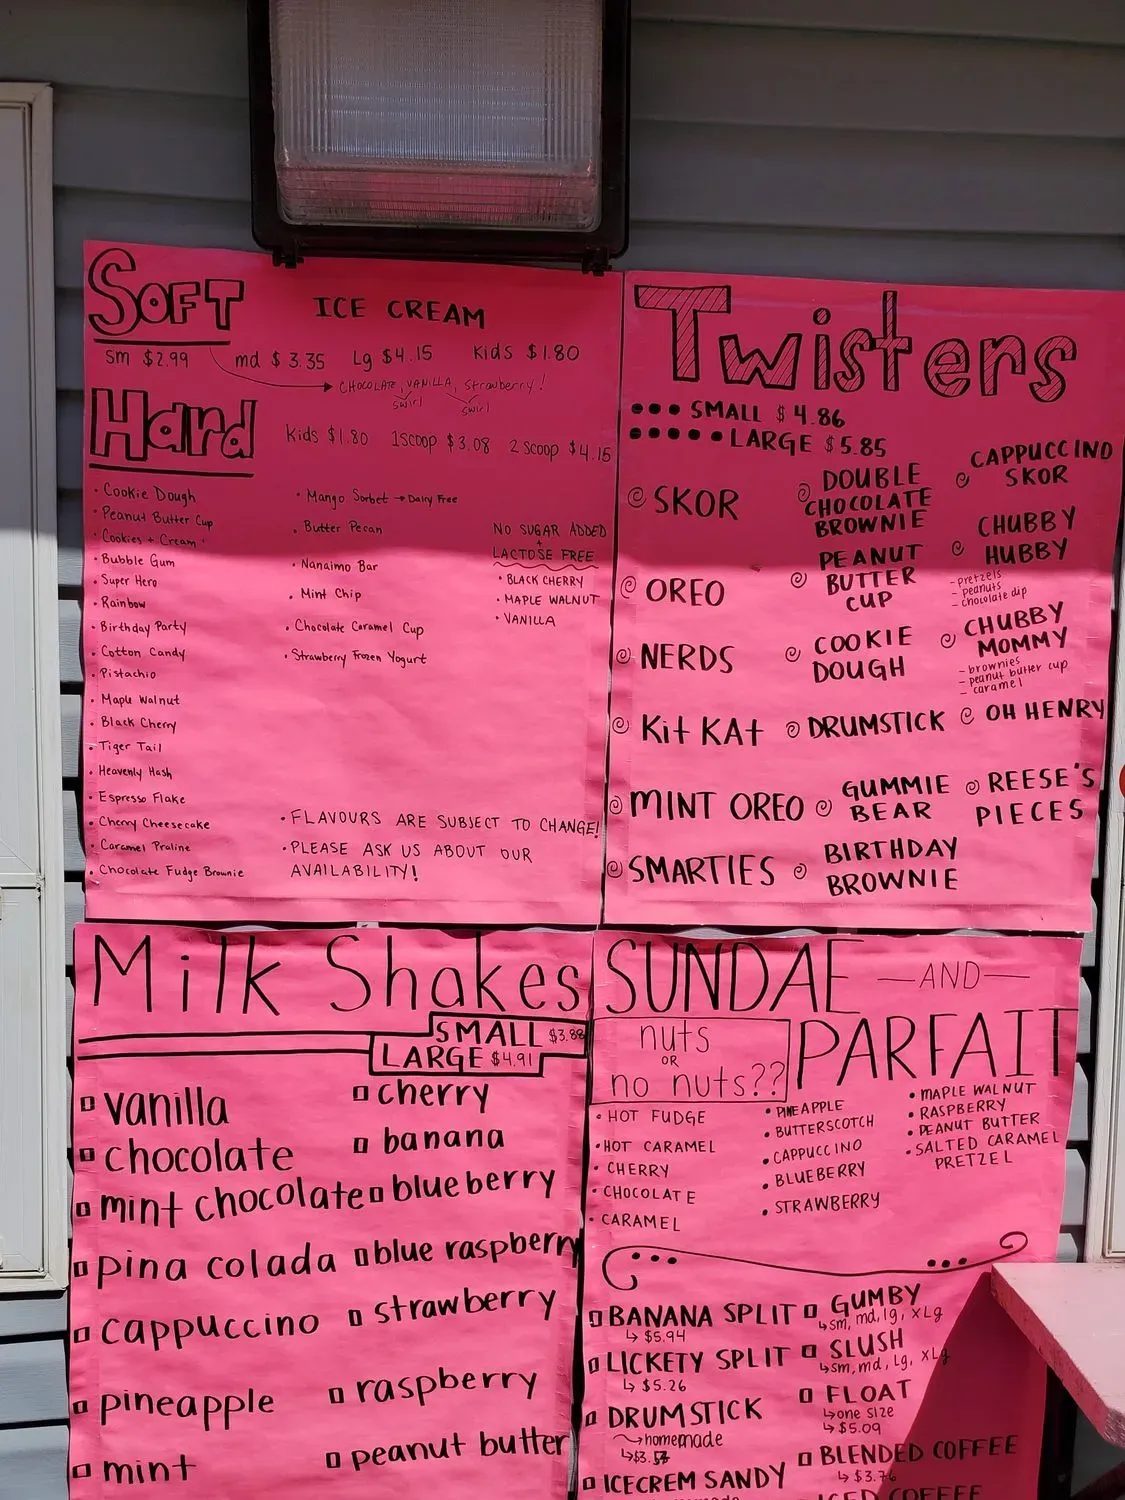 SOFT ICE CREAM
Sm $2.99 md $3.35 Lg $4.15 Kids $1.80
CHOCOLATE, VANILLA, Strawberry!
Swirl Swirl
Hard
Kids $1.80 1Scoop $3.08 2 Scoop $4.15
• Cookie Dough
• Peanut Butter Cup
• Cookies + Cream
• Bubble Gum
• Super Hero
• Rainbow
• Birthday Party
• Cotton Candy
• Pistachio
• Maple Walnut
• Black Cherry
• Tiger Tail
• Heavenly Hash
• Espresso Flake
• Cherry Cheesecake
• Caramel Praline
• Chocolate Fudge Brownie
• Mango Sorbet → Dairy Free
• Butter Pecan
• Nanaimo Bar
• Mint Chip
• Chocolate Caramel Cup
• Strawberry Frozen Yogurt
NO SUGAR ADDED
+
LACTOSE FREE
• BLACK CHERRY
• MAPLE WALNUT
• VANILLA
• FLAVOURS ARE SUBJECT TO CHANGE!
• PLEASE ASK US ABOUT OUR
AVAILABILITY!
Twisters
SMALL $4.86
LARGE $5.85
SKOR
OREO
NERDS
Kit KAt
MINT OREO
SMARTIES
DOUBLE
CHOCOLATE
BROWNIE
PEANUT
BUTTER
CUP
COOKIE
DOUGH
DRUMSTICK
GUMMIE
BEAR
BIRTHDAY
BROWNIE
CAPPUCCINO
SKOR
CHUBBY
HUBBY
- pretzels
- peanuts
- chocolate dip
CHUBBY
MOMMY
- brownies
- peanut butter cup
- caramel
OH HENRY
REESE'S
PIECES
Milk Shakes
SMALL $3.88
LARGE $4.91
vanilla
chocolate
mint chocolate
pina colada
cappuccino
pineapple
mint
cherry
banana
blueberry
blue raspberry
strawberry
raspberry
peanut butter
SUNDAE —AND—
PARFAIT
nuts
OR
no nuts??
• HOT FUDGE
• HOT CARAMEL
• CHERRY
• CHOCOLATE
• CARAMEL
• PINEAPPLE
• BUTTERSCOTCH
• CAPPUCCINO
• BLUEBERRY
• STRAWBERRY
• MAPLE WALNUT
• RASPBERRY
• PEANUT BUTTER
• SALTED CARAMEL
PRETZEL
BANANA SPLIT
↳ $5.94
LICKETY SPLIT
↳ $5.26
DRUMSTICK
homemade
ICECREM SANDY
GUMBY
↳ sm, md, lg, xLg
SLUSH
↳ sm, md, Lg, xLg
FLOAT
↳ one size
↳ $5.09
BLENDED COFFEE
ICED COFFEE